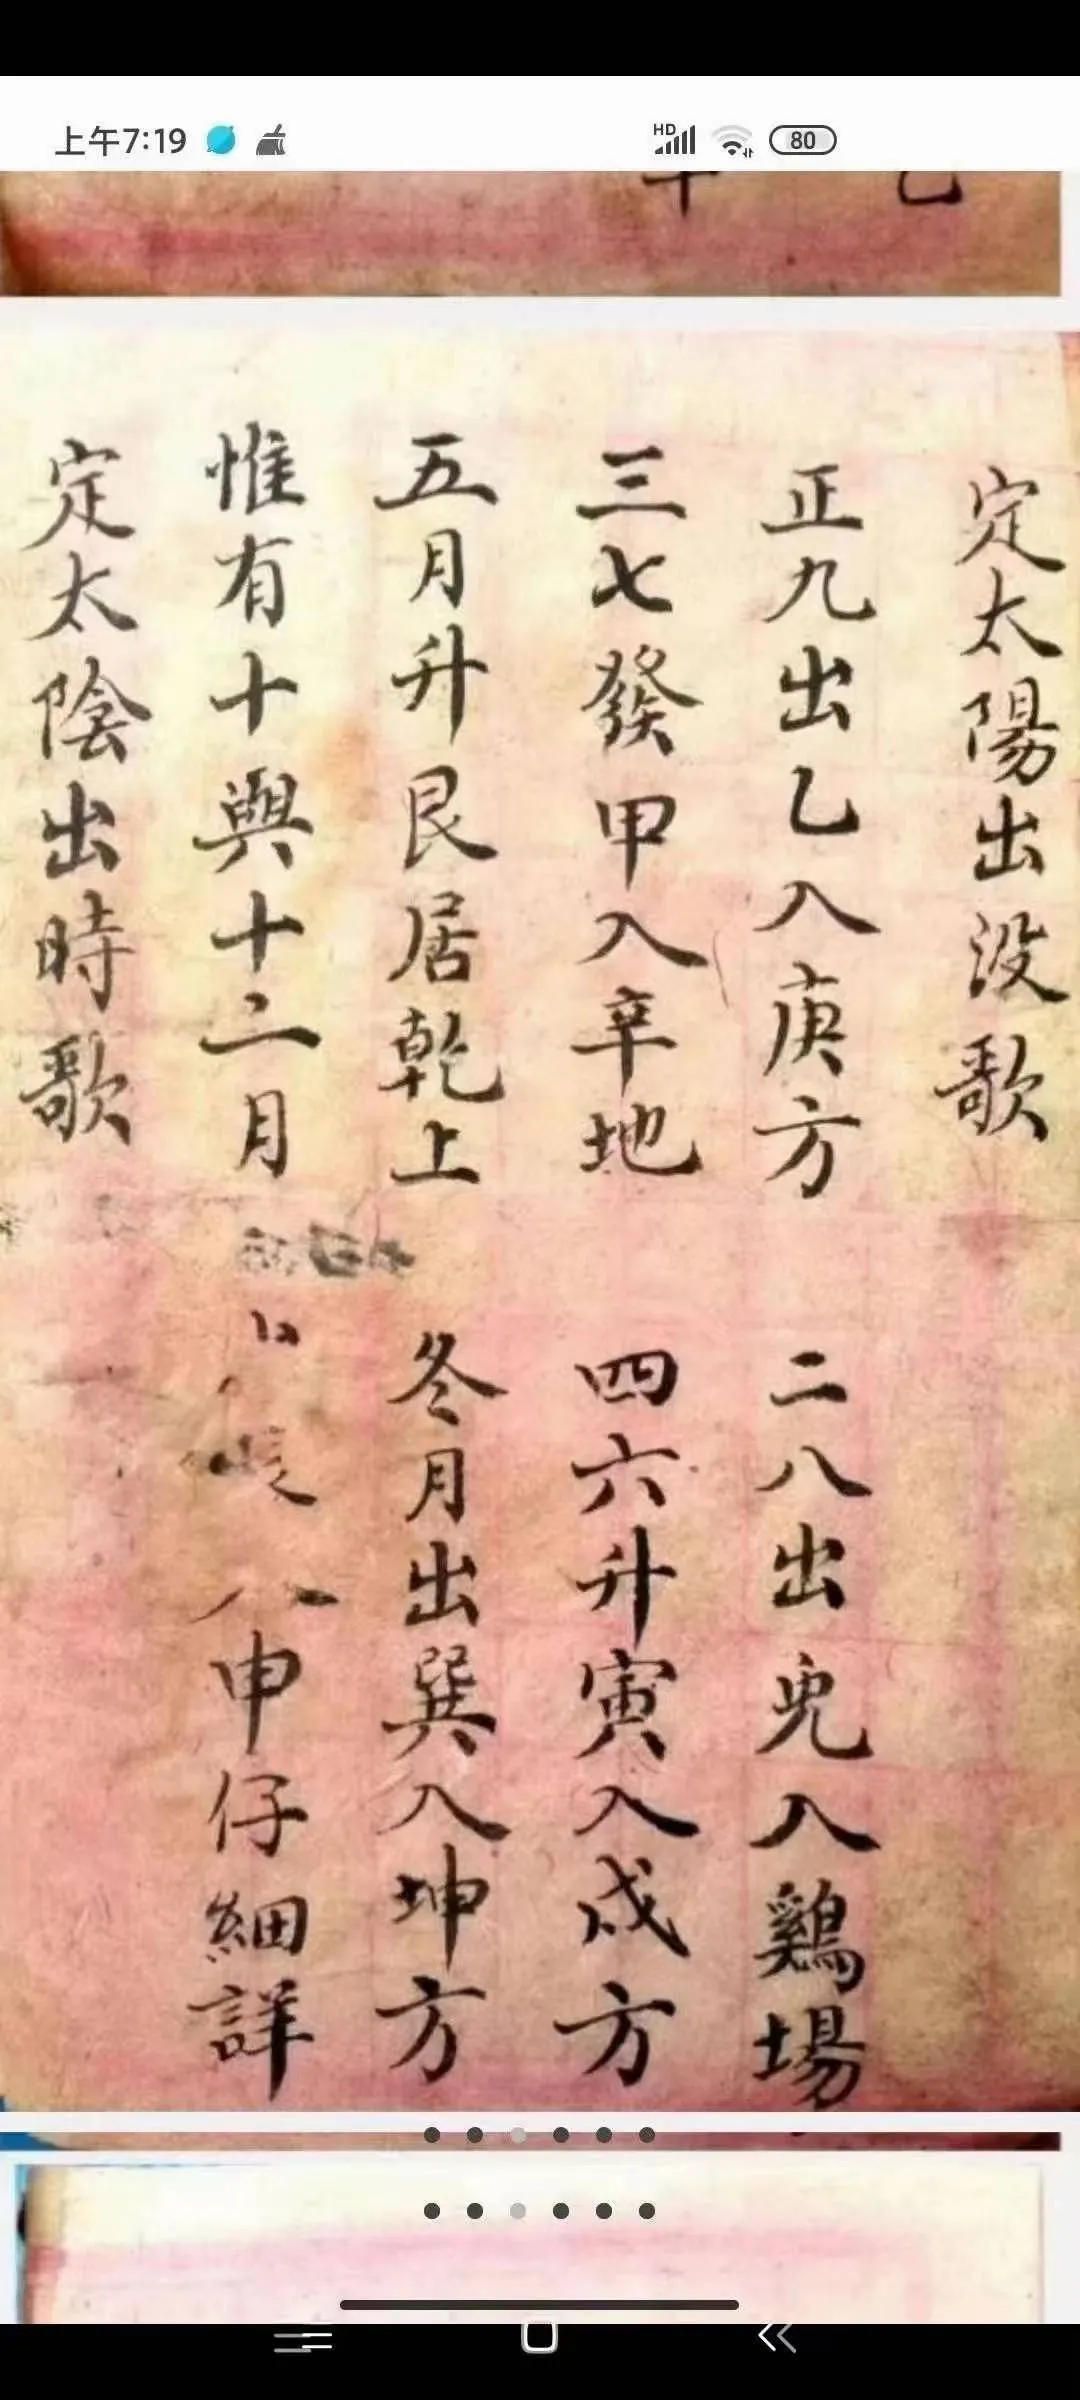 上午7:19
HD
80
定太陽出沒歌
正九出乙入庚方 二八出兎入鷄場
三七發甲入辛地 四六升寅入戍方
五月升艮居乾上 冬月出巽入坤方
惟有十與十二月 申仔細詳
定太陰出時歌